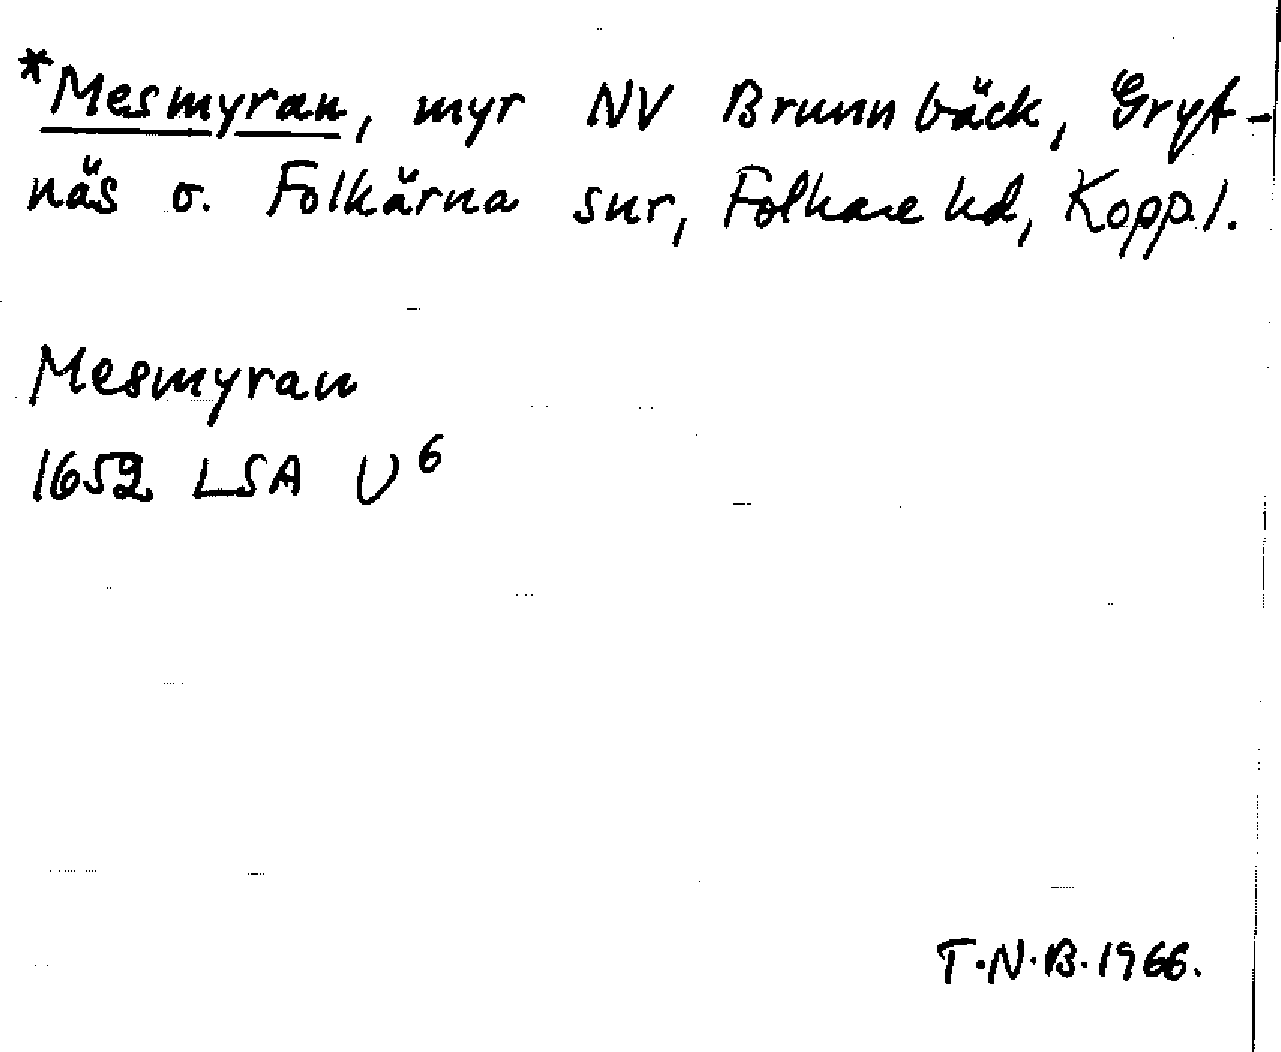 *Mesmyran, myr NV Brunnbäck, Gryt-
näs o. Folkärna snr, Folkare hd, Kopp.l.
Mesmyran
1652 LSA U⁶
T.N.B. 1966.